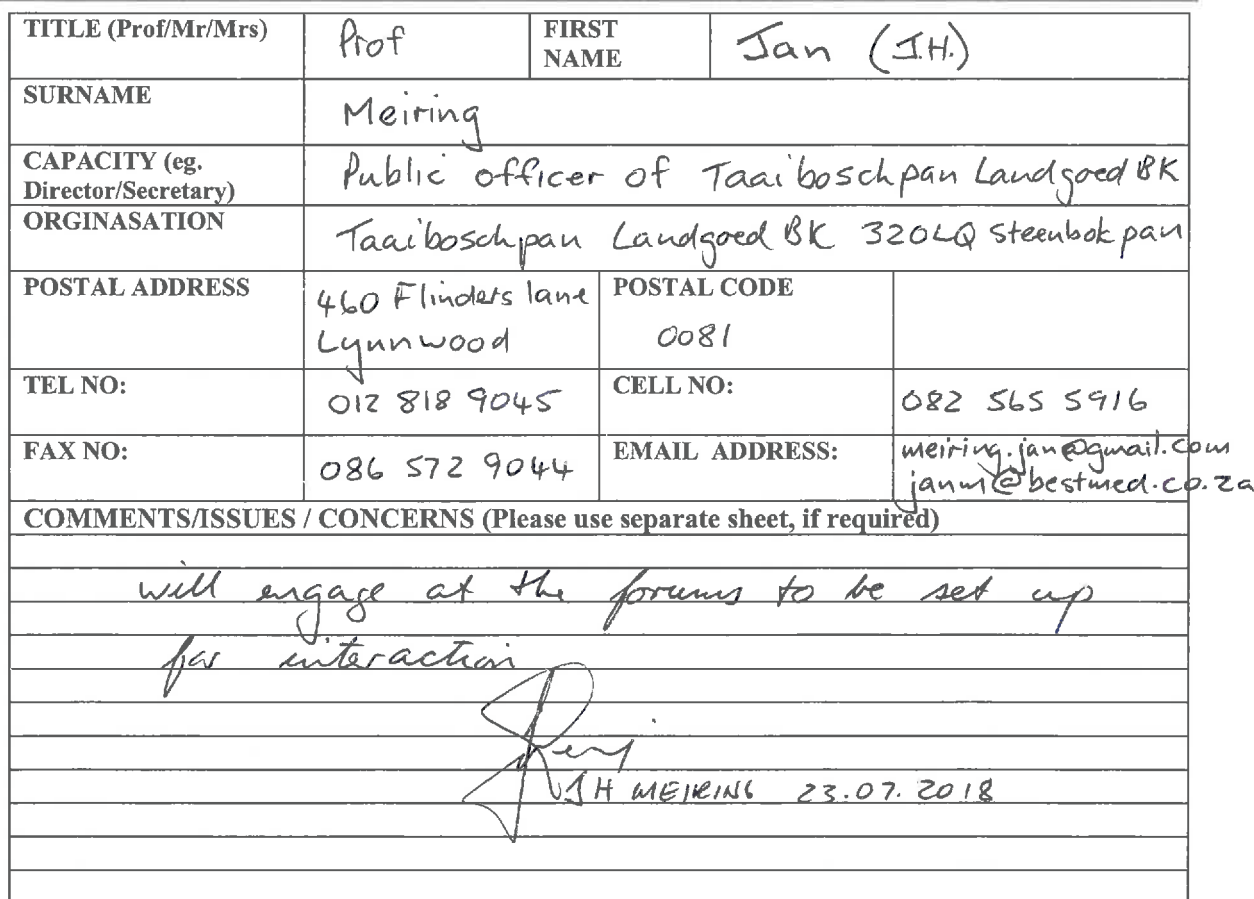 TITLE (Prof/Mr/Mrs) Prof FIRST NAME Jan (J.H.)
SURNAME Meiring
CAPACITY (eg. Director/Secretary) Public officer of Taaiboschpan Landgoed BK
ORGINASATION Taaiboschpan Landgoed BK 320LQ Steenbokpan
POSTAL ADDRESS 460 Flinders lane
Lynnwood
POSTAL CODE
0081
TEL NO: 012 818 9045 CELL NO: 082 565 5916
FAX NO: 086 572 9044 EMAIL ADDRESS: meiring.jan@gmail.com
janm@bestmed.co.za
COMMENTS/ISSUES / CONCERNS (Please use separate sheet, if required)
will engage at the forums to be set up
for interaction
JH MEIRING 23.07.2018